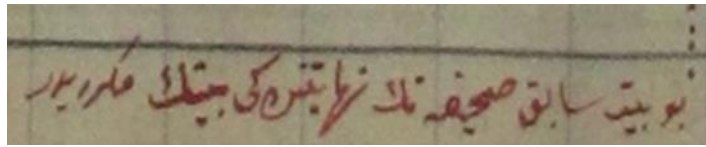 بو بیت سابق صحیفه نك نهایتنده كی بیتك مكرریدر